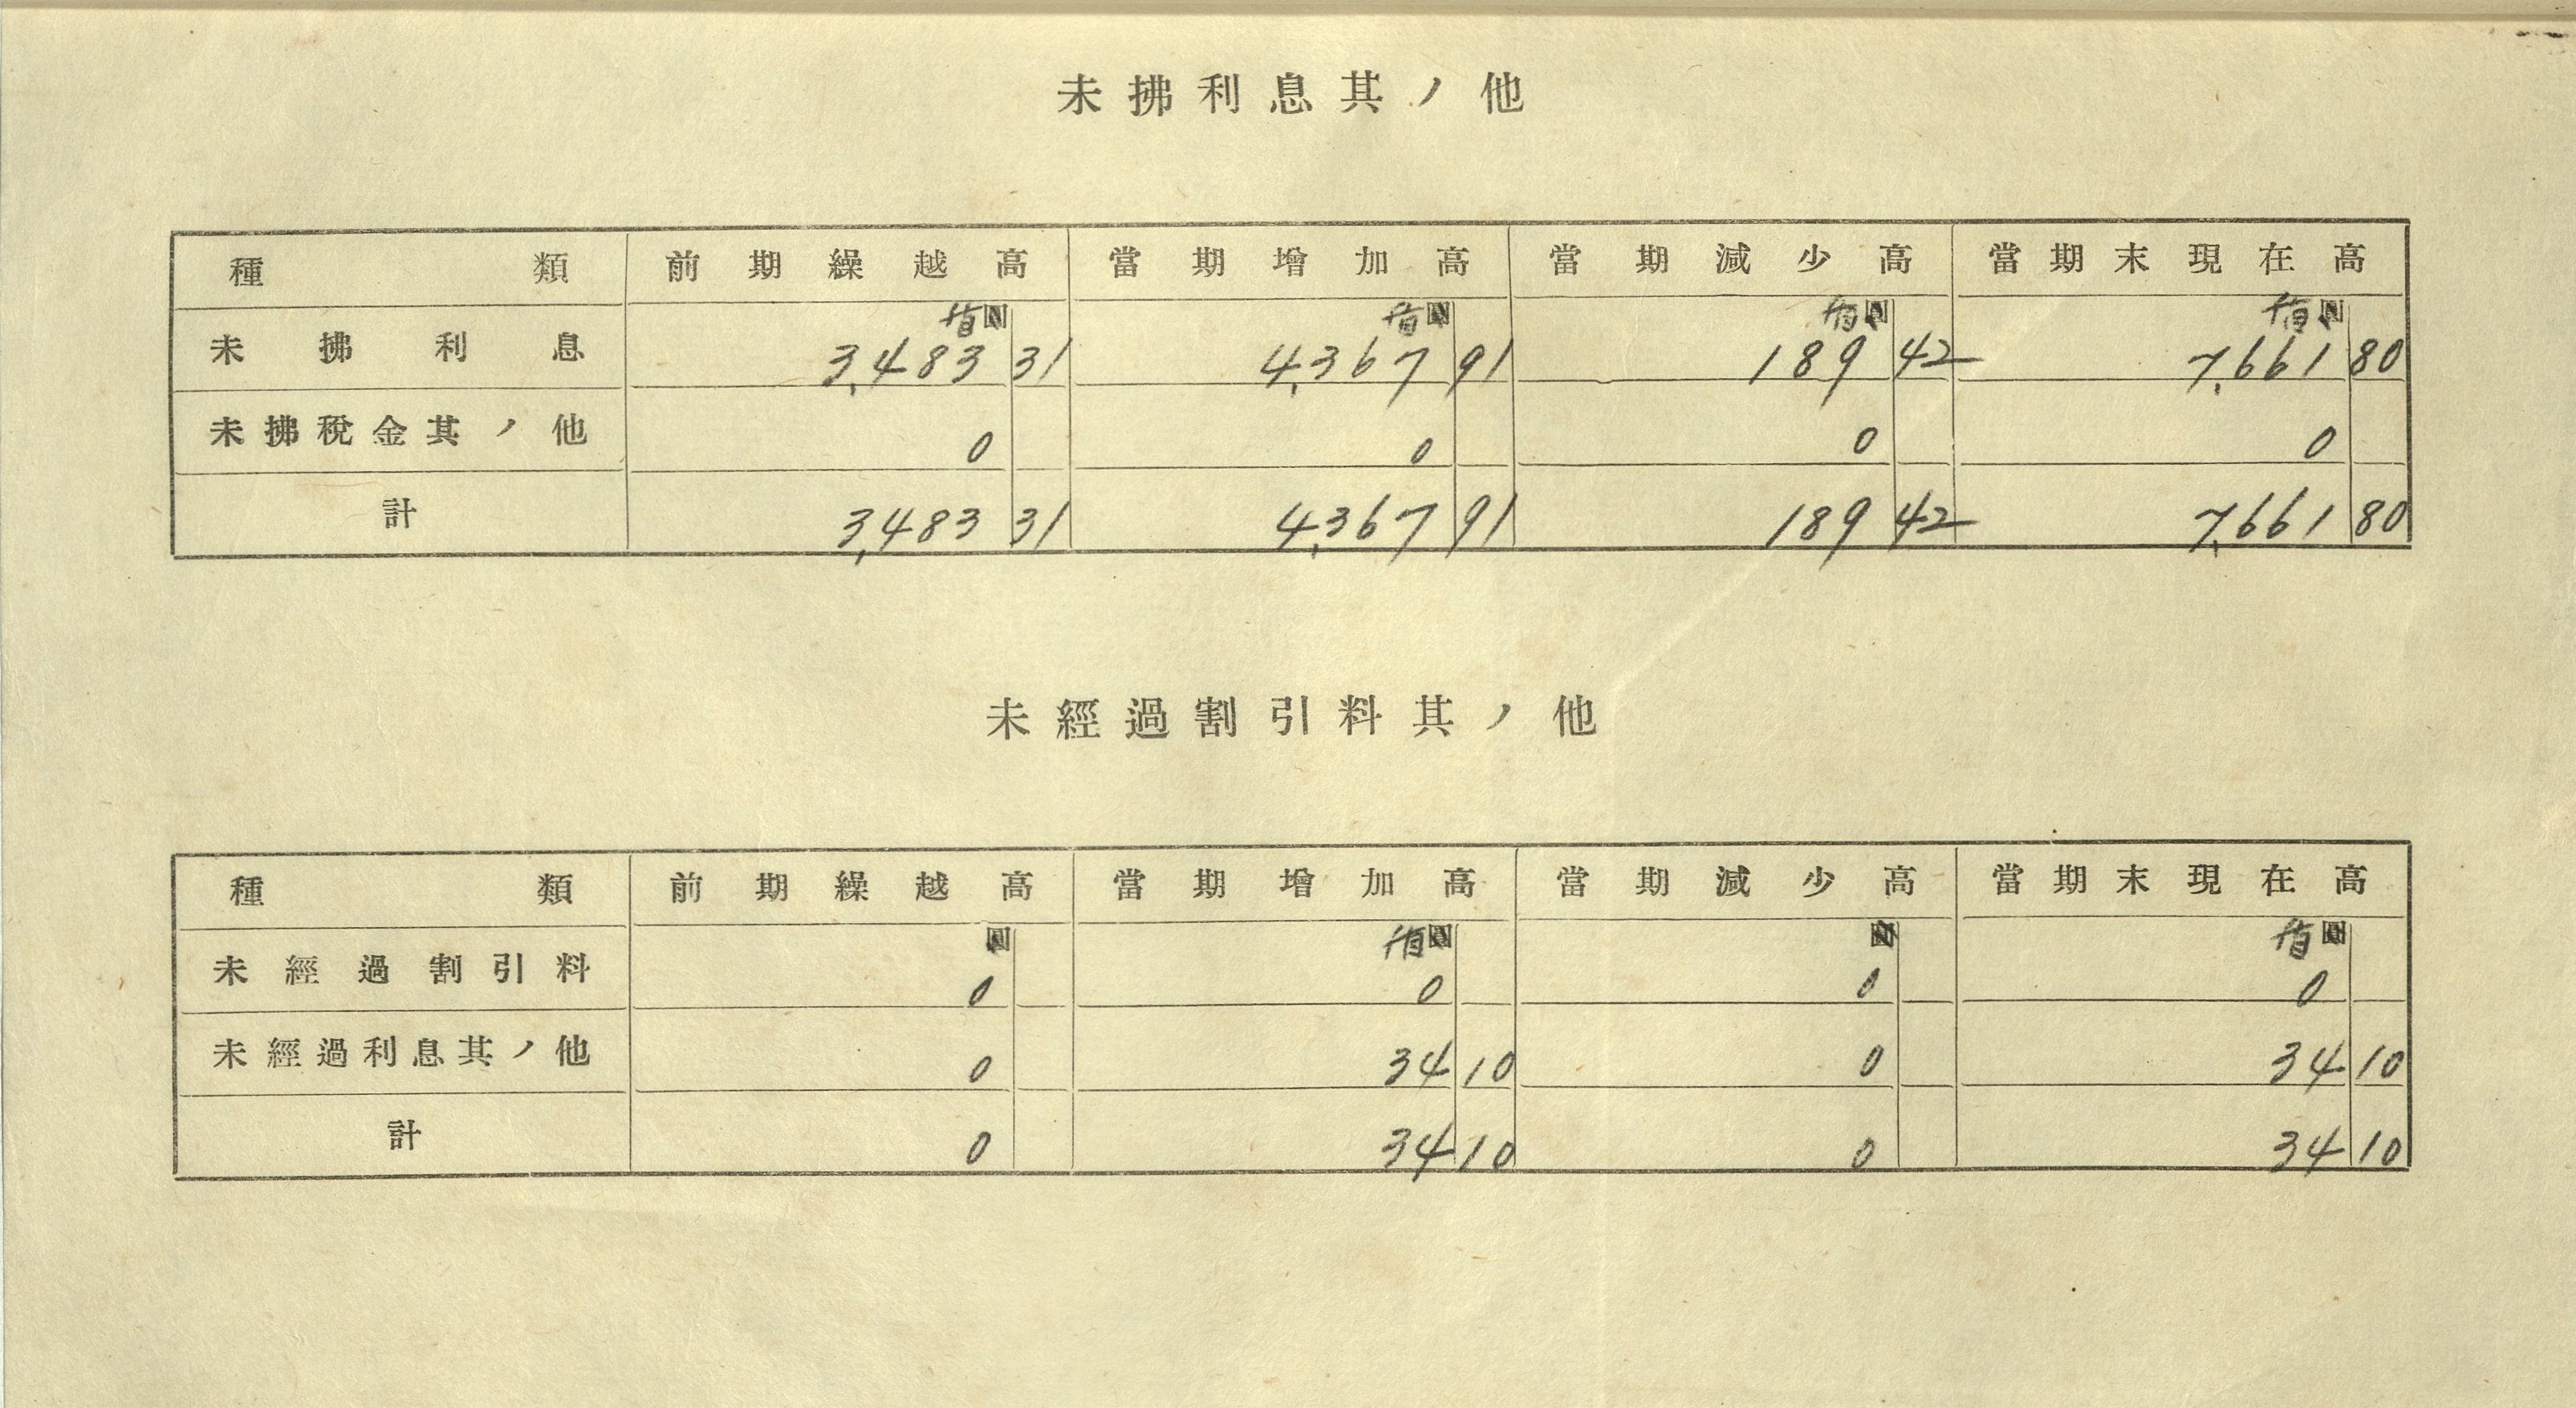 未拂利息其ノ他
種類 前期繰越高 當期增加高 當期減少高 當期末現在高
未拂利息 3,483 31 4,367 91 189 42 7,661 80
未拂稅金其ノ他 0 0 0 0
計 3,483 31 4,367 91 189 42 7,661 80
未經過割引料其ノ他
種類 前期繰越高 當期增加高 當期減少高 當期末現在高
圓
未經過割引料 0 0 0 0
未經過利息其ノ他 0 34 10 0 34 10
計 0 34 10 0 34 10